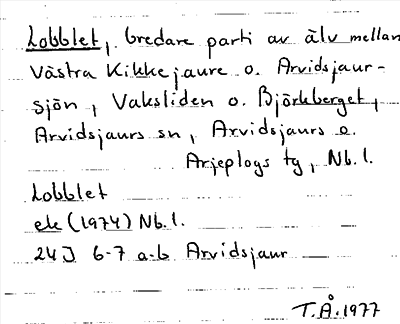 Lobblet, bredare parti av älv mellan
Västra Kikkejaure o. Arvidsjaur-
sjön, Vaksliden o. Björkberget,
Arvidsjaurs sn, Arvidsjaurs o.
Arjeplogs tg, Nb.l.
Lobblet
ek (1974) Nb.l.
24J 6-7 a-b Arvidsjaur
T.Å.1977